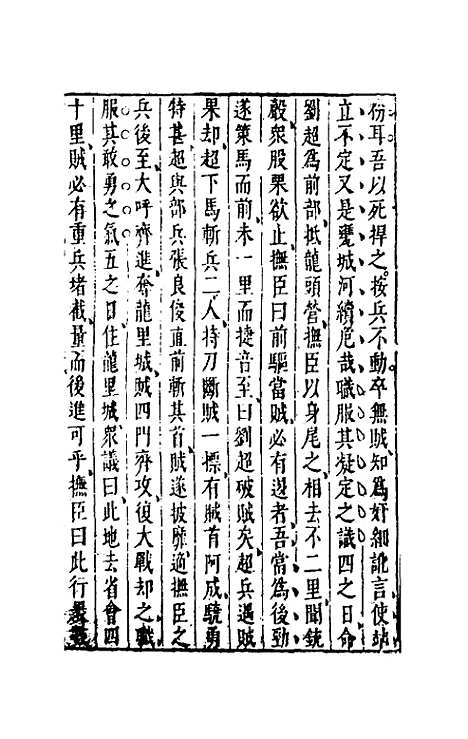 份耳吾以死捍之按兵不動卒無賊知為奸細訛言使站
立不定又是甕城河續危哉職服其凝定之識四之日命
劉超為前部抵龍頭營撫臣以身尾之相去不二里聞銃
聲眾股栗欲止撫臣曰前驅當賊必有退者吾當為後勁
遂策馬而前未一里而捷音至曰劉超破賊矣超兵遇賊
果却超下馬斬兵二人持刀斷賊一標有賊首阿成驍勇
特甚超與部兵張良俊直前斬其首賊遂披靡適撫臣之
兵後至大呼齊進奪龍里城賊四門齊攻復大戰却之職
服其敢勇之氣五之日住龍里城眾議曰此地去省會四
十里賊必有重兵堵截量而後進可乎撫臣曰此行